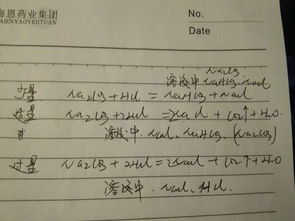 海恩药业集团
No.
Date
Na2CO3
溶液中 NaHCO3 NaCl
少量 Na2CO3 + HCl = NaHCO3 + NaCl
Na2CO3 + 2HCl = 2NaCl + CO2↑ + H2O.
溶液中. NaCl, NaHCO3, (Na2CO3)
过量 Na2CO3 + 2HCl = 2NaCl + CO2↑ + H2O
溶液中. NaCl、HCl.